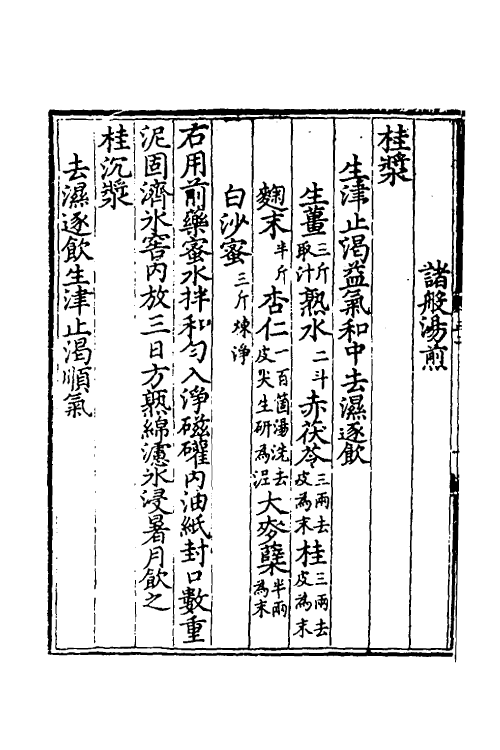 諸般湯煎
桂漿
生津止渴益氣和中去濕逐飲
生薑三斤取汁熟水二斗赤茯苓三兩去皮為末桂三兩去皮為末
麴末半斤杏仁一百箇湯洗去皮尖生研為泥大麥蘖半兩為末
白沙蜜三斤煉淨
右用前藥蜜水拌和勻入淨磁罐內油紙封口數重
泥固濟氷窖內放三日方熟綿濾氷浸暑月飲之
桂沉漿
去濕逐飲生津止渴順氣